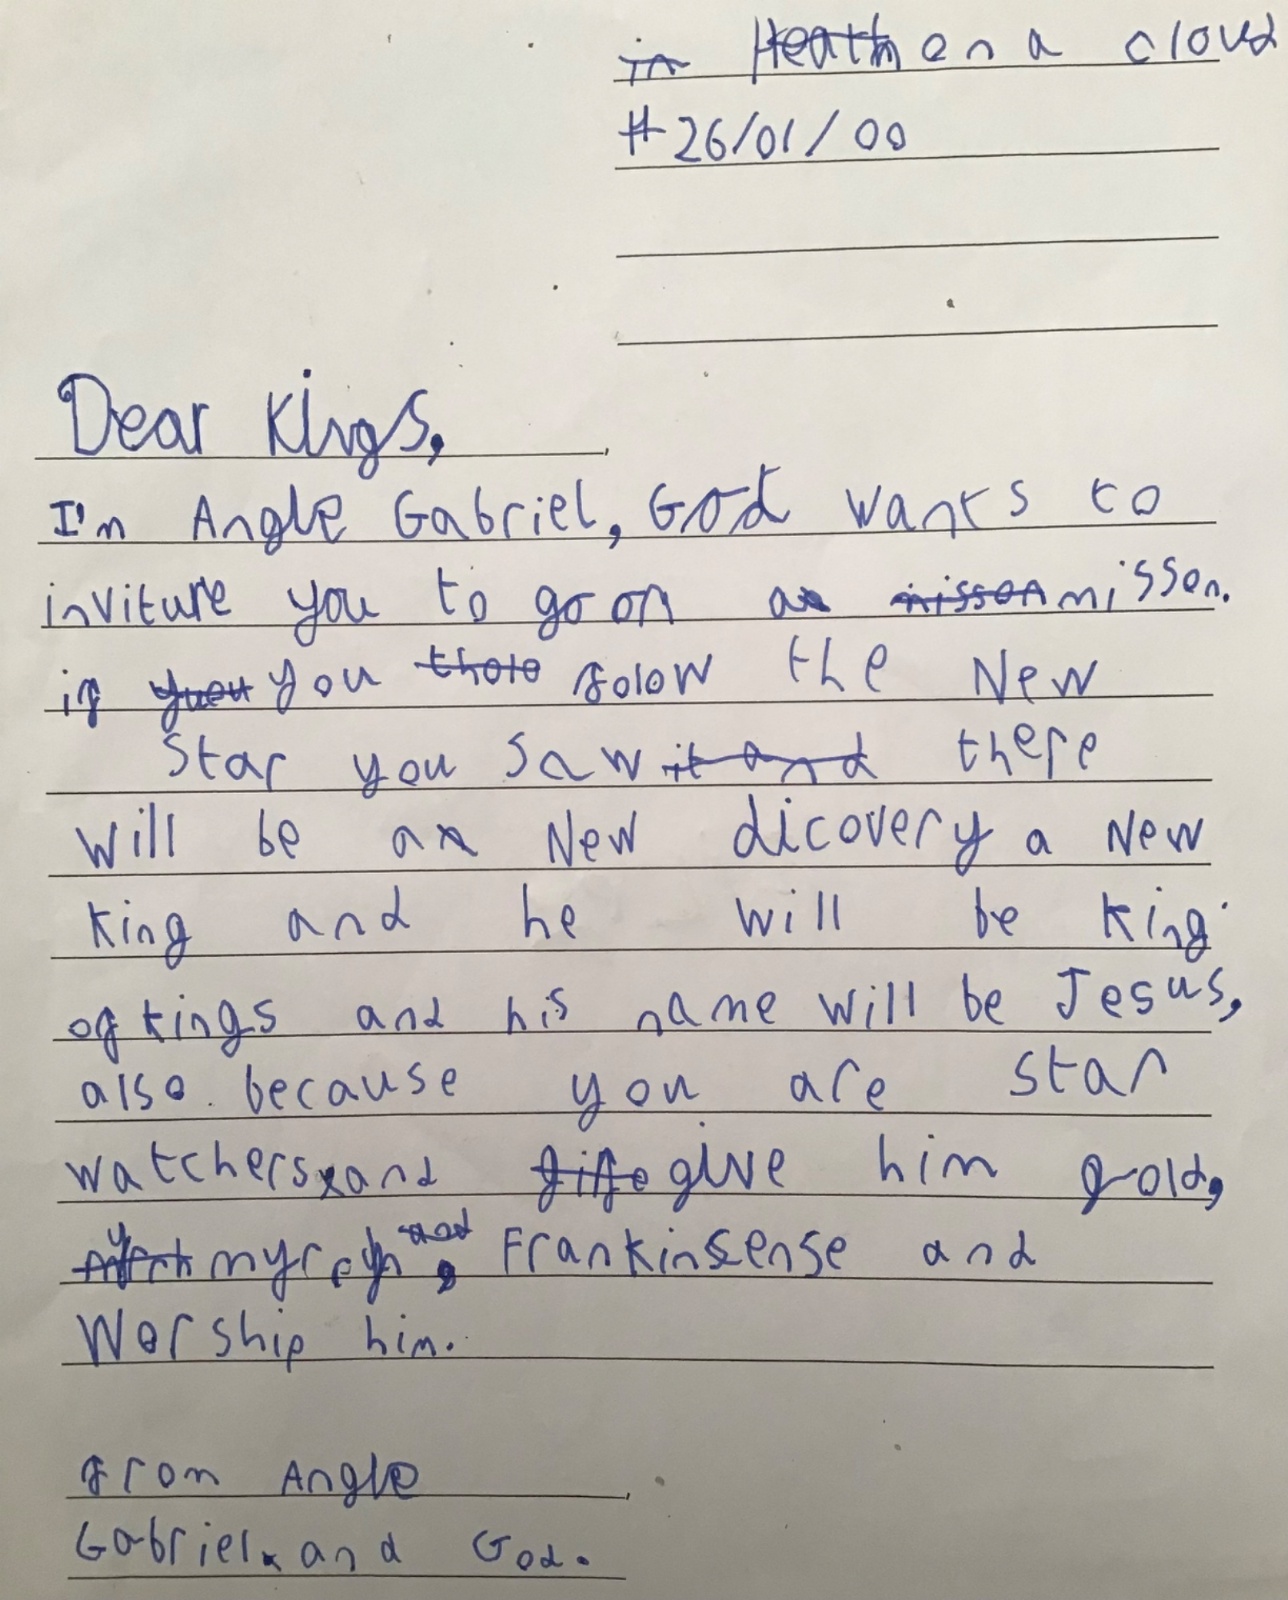 in Heath on a cloud
#26/01/00
Dear Kings,
I'm Angle Gabriel, God wants to
inviture you to go on a nisson misson.
if yueu you thole folow the New
Star you Saw it and there
will be an New dicovery a New
king and he will be king
of kings and his name will be Jesus,
also because you are star
watchers, and give him gold,
myrrh and, Frankinsense and
Worship him.
from Angle
Gabriel. and God.